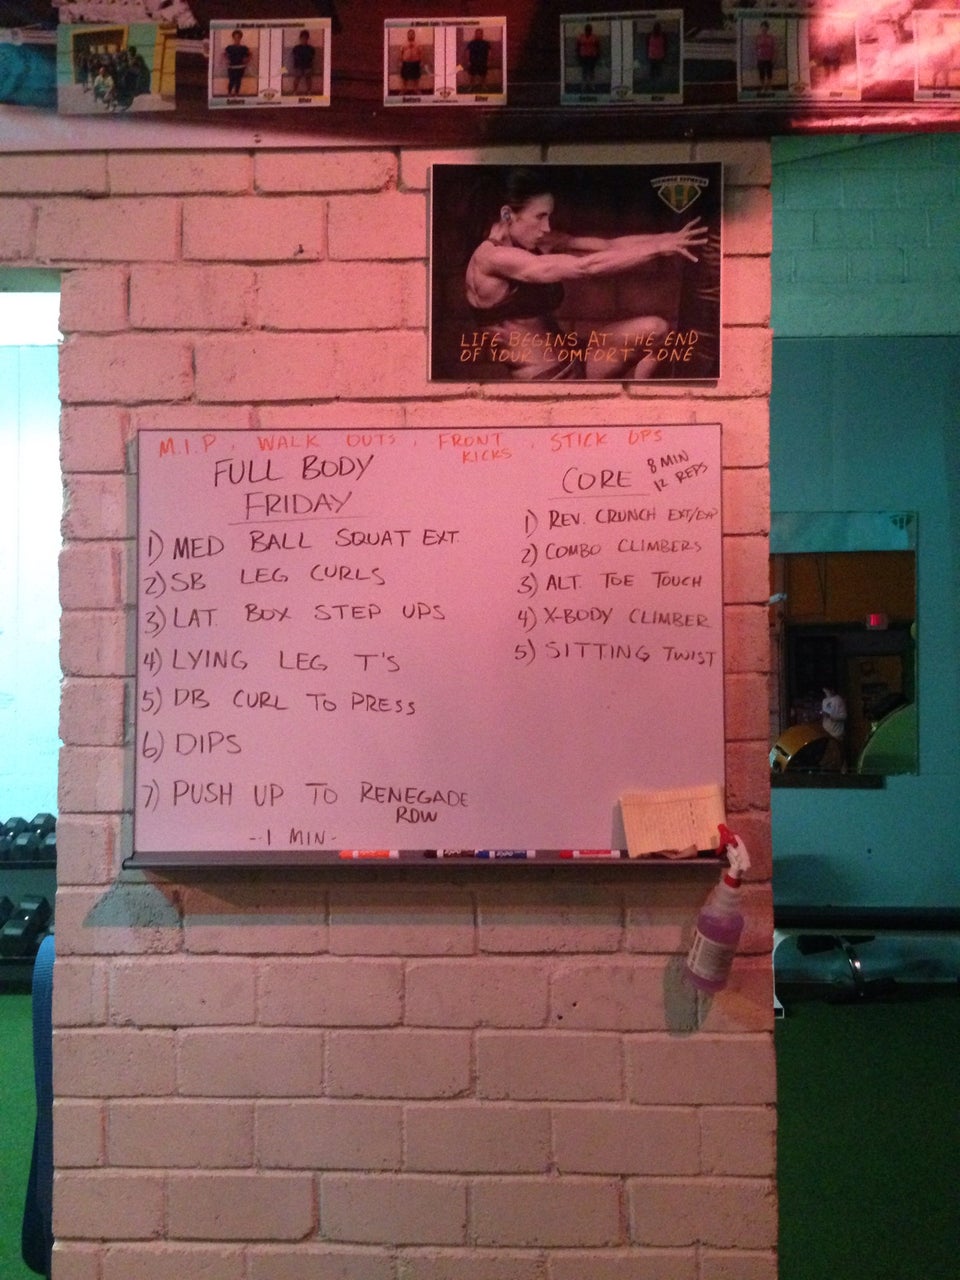 Before
After
Before
After
Before
After
Before
LIFE BEGINS AT THE END
OF YOUR COMFORT ZONE
M.I.P, WALK OUTS, FRONT KICKS, STICK UPS
FULL BODY
FRIDAY
1) MED BALL SQUAT EXT.
2) SB LEG CURLS
3) LAT. BOX STEP UPS
4) LYING LEG T'S
5) DB CURL TO PRESS
6) DIPS
7) PUSH UP TO RENEGADE
ROW
-1 MIN-
CORE
8 MIN
12 REPS
1) REV. CRUNCH EXT/EXP
2) COMBO CLIMBERS
3) ALT. TOE TOUCH
4) X-BODY CLIMBER
5) SITTING TWIST